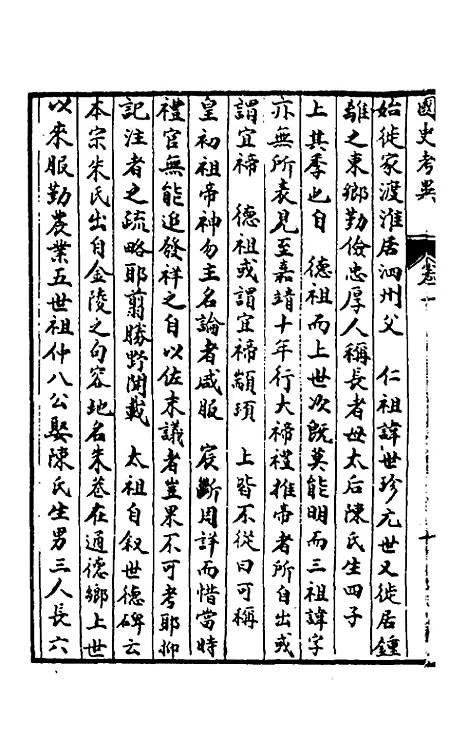 國史考異 卷一
始徙家渡淮居泗州父　仁祖諱世珍元世又徙居鍾
離之東鄉勤儉忠厚人稱長者母太后陳氏生四子
上其季也自　德祖而上世次既莫能明而三祖諱字
亦無所表見至嘉靖十年行大禘禮推帝者所自出或
謂宜禘　德祖或謂宜禘顓頊　上皆不從曰可稱
皇初祖帝神勿主名論者咸服　宸斷周詳而惜當時
禮官無能追發祥之自以佐末議者豈果不可考耶抑
記注者之疏略耶翦勝野聞載　太祖自叙世德碑云
本宗朱氏出自金陵之句容地名朱巷在通德鄉上世
以來服勤農業五世祖仲八公娶陳氏生男三人長六